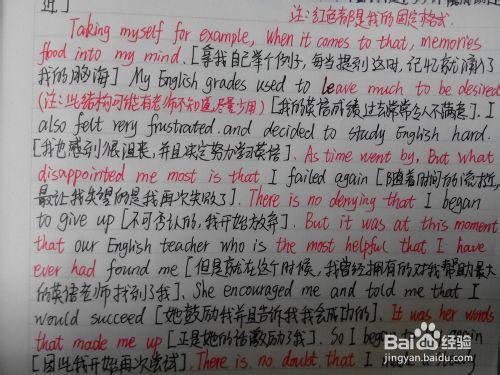 注:红色都是我的固定格式.
Taking myself for example, When it comes to that, memories
flood into my mind. [拿我自己举个例子, 每当提到这时, 记忆就涌入了
我的脑海] My English grades used to leave much to be desired
(注: 此结构可能有老师不知道,尽量少用) [我的英语成绩过去常常令人不满意]. I
also felt very frustrated. and decided to study English hard.
[我也感到很沮丧, 并且决定努力学习英语]. As time went by, But what
disappointed me most is that I failed again [随着时间的流逝,
最让我失望的是我再次失败了]. There is no denying that I began
to give up [不可否认的, 我开始放弃]. But it was at this moment
that our English teacher who is the most helpful that I have
ever had found me [但是就在这个时候, 我曾经拥有的对我帮助最大
的英语老师找到了我]. She encouraged me and told me that I
would succeed [她鼓励我并且告诉我我会成功的]. It was her words
that made me up [正是她的话激励了我]. So I began again
[因此我开始再次尝试]. There is no doubt that I
Baidu 经验
jingyan.baidu.com